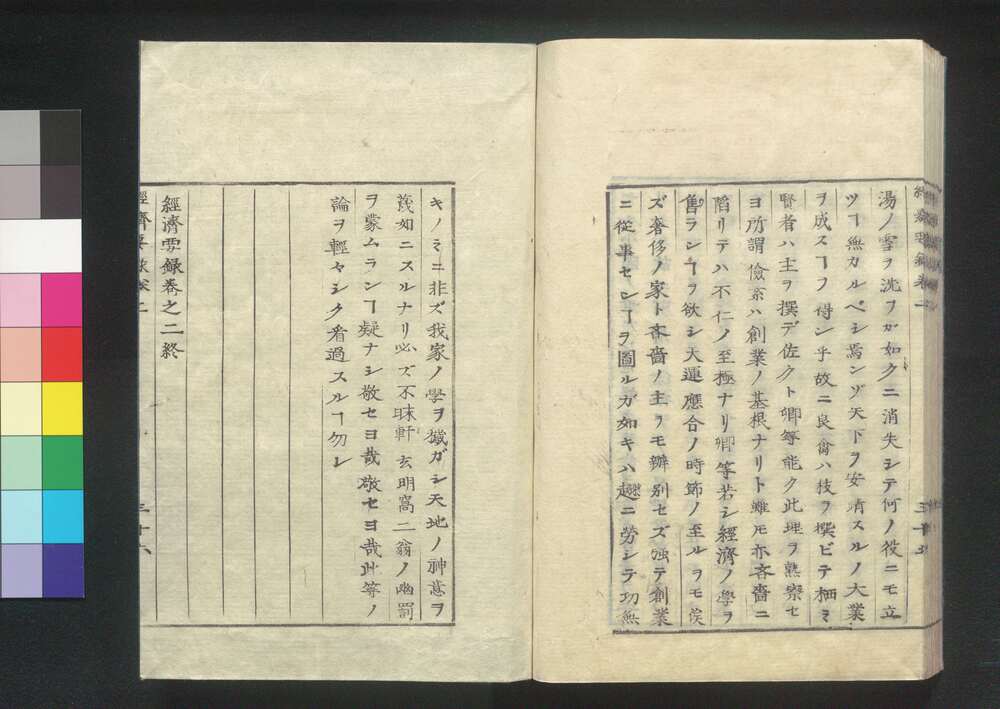 湯ノ雪ヲ沈ヲガ如クニ消失シテ何ノ役ニモ立
ツヿ無カルベシ焉ンゾ天下ヲ安靖スルノ大業
ヲ成スヿヲ得ン乎故ニ良禽ハ枝ヲ撰ビテ栖ミ
賢者ハ主ヲ撰デ佐クト卿等能ク此理ヲ熟察セ
ヨ所謂儉素ハ創業ノ基根ナリト雖モ亦吝嗇ニ
陷リテハ不仁ノ至極ナリ卿等若シ經濟ノ學ヲ
舊ランヿヲ欲シ大運應合ノ時節ノ至ルヲモ俟
ズ奢侈ノ家ト吝嗇ノ主ヲモ辨別セズ強テ創業
ニ從事センヿヲ圖ルガ如キハ趣ニ勞シテ功無
キノミニ非ズ我家ノ學ヲ攕ガシ天地ノ神意ヲ
蔑如ニスルナリ必ズ不昧軒玄明窩二翁ノ幽罰
ヲ蒙ムランヿ疑ナシ敬セヨ哉敬セヨ哉此等ノ
論ヲ輕々シク看過スルヿ勿レ
經濟要錄卷之二終
經濟要錄卷二
三十六